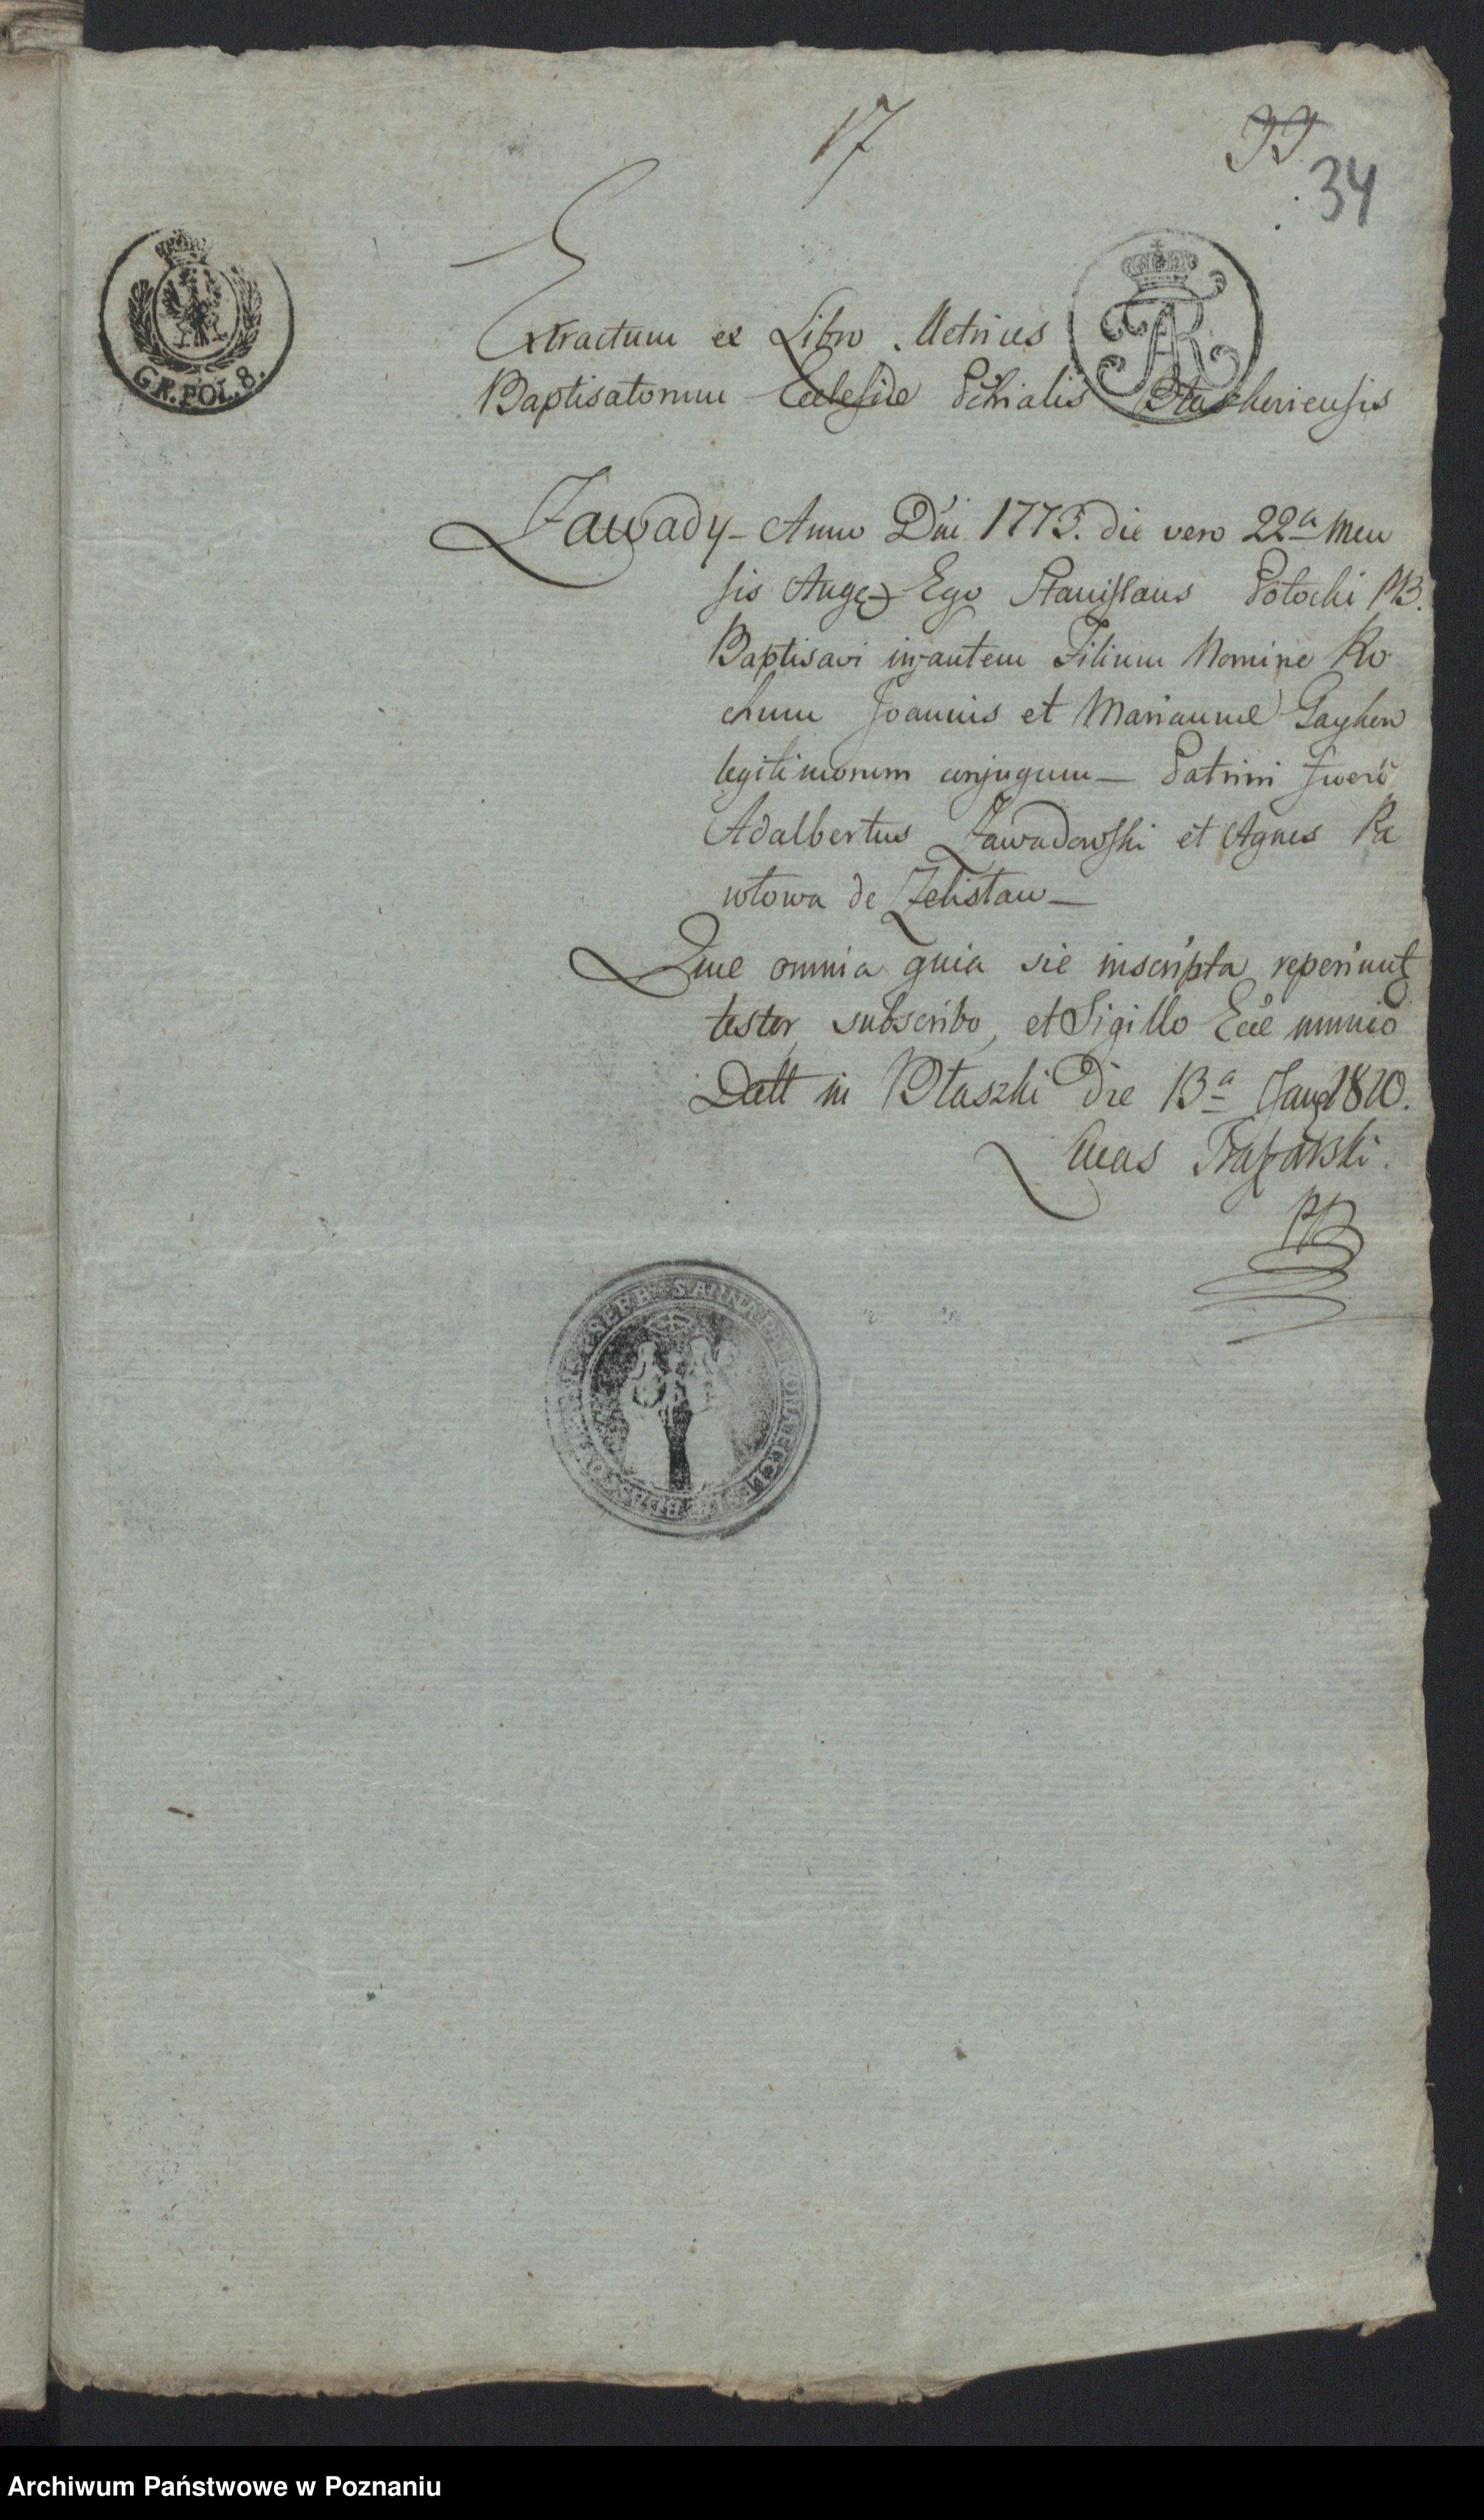 17
99
34
G.R.POL.8.
FAR
Extractum ex Libro Metrices
Baptisatorum Ecclesiæ Pchialis Blaszkoviensis
Zawady – Anno Dni 1775. die vero 22a Men
sis Auge Ego Stanislaus Potocki PB.
Baptisavi infantem Filium Nomine Ro
chum Joannis et Mariannæ Gayken
legitimorum conjugum – Patrini fuere
Adalbertus Zawadowski et Agnes Pa
włowa de Zelisław –
Quæ omnia quia sic inscripta reperiunt
testor, subscribo, et Sigillo Ecclæ munio
Datt in Błaszki Die 13a Jan 1810.
Lucas
PB
S ANNA
Archiwum Państwowe w Poznaniu